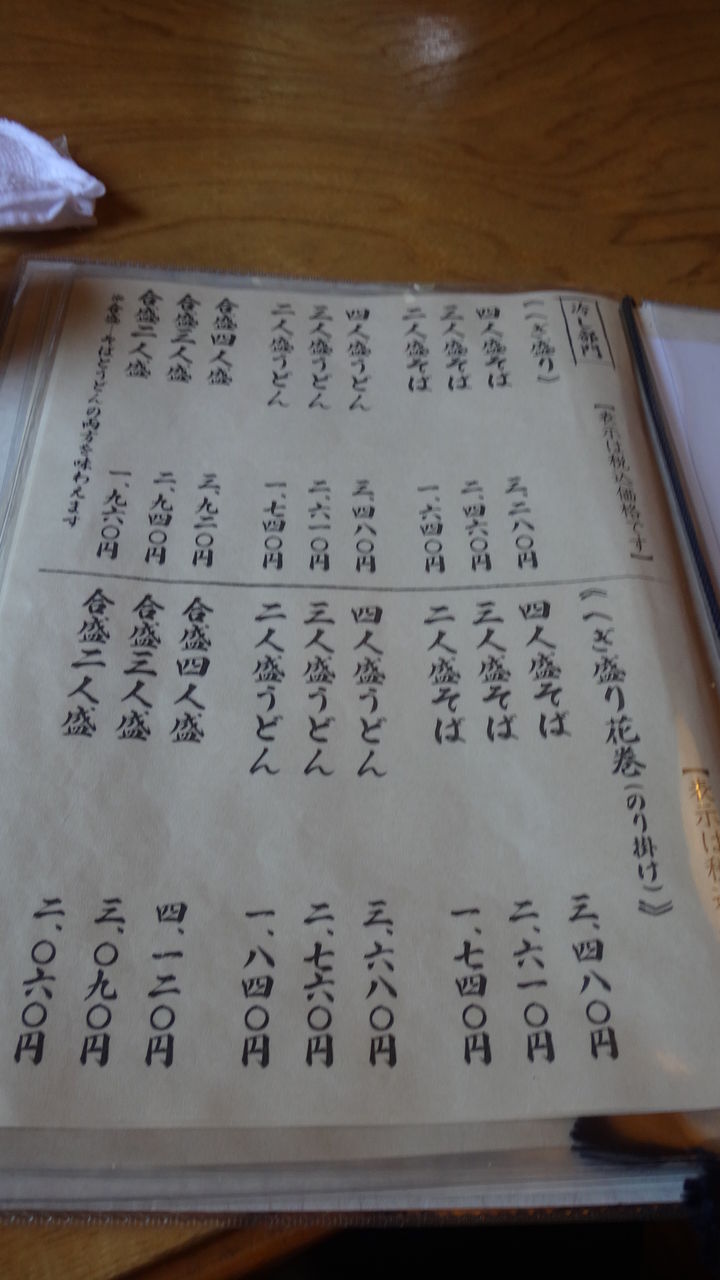 冷し部門
【表示は税込価格です】
《へぎ盛り》
四人盛そば 三、二八〇円
三人盛そば 二、四六〇円
二人盛そば 一、六四〇円
四人盛うどん 三、四八〇円
三人盛うどん 二、六一〇円
二人盛うどん 一、七四〇円
合盛四人盛 三、九二〇円
合盛三人盛 二、九四〇円
合盛二人盛 一、九六〇円
※合盛…そばとうどんの両方を味わえます
《へぎ盛り花巻(のり掛け)》
四人盛そば 三、四八〇円
三人盛そば 二、六一〇円
二人盛そば 一、七四〇円
四人盛うどん 三、六八〇円
三人盛うどん 二、七六〇円
二人盛うどん 一、八四〇円
合盛四人盛 四、一二〇円
合盛三人盛 三、〇九〇円
合盛二人盛 二、〇六〇円
【表示は税